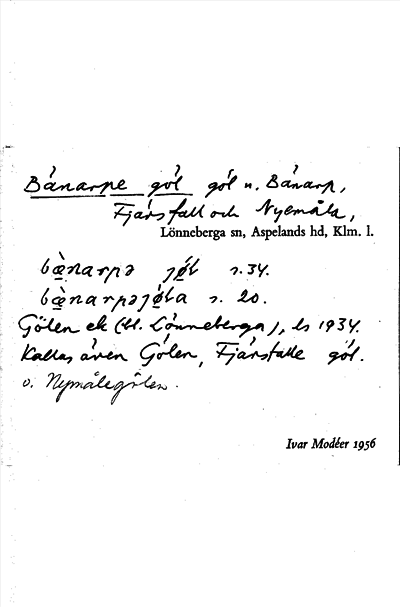 Bänarpe göl göl n. Bänarp,
Fjärsfall och Nyemåla,
Lönneberga sn, Aspelands hd, Klm. l.
bæ̀narpə jø̄l s. 34.
bæ̀narpəjø̄la s. 20.
Gölen ek (bl. Lönneberga), ls 1934.
Kallas även Gölen, Fjärsfalle göl.
o. Nymålegölen.
Ivar Modéer 1956